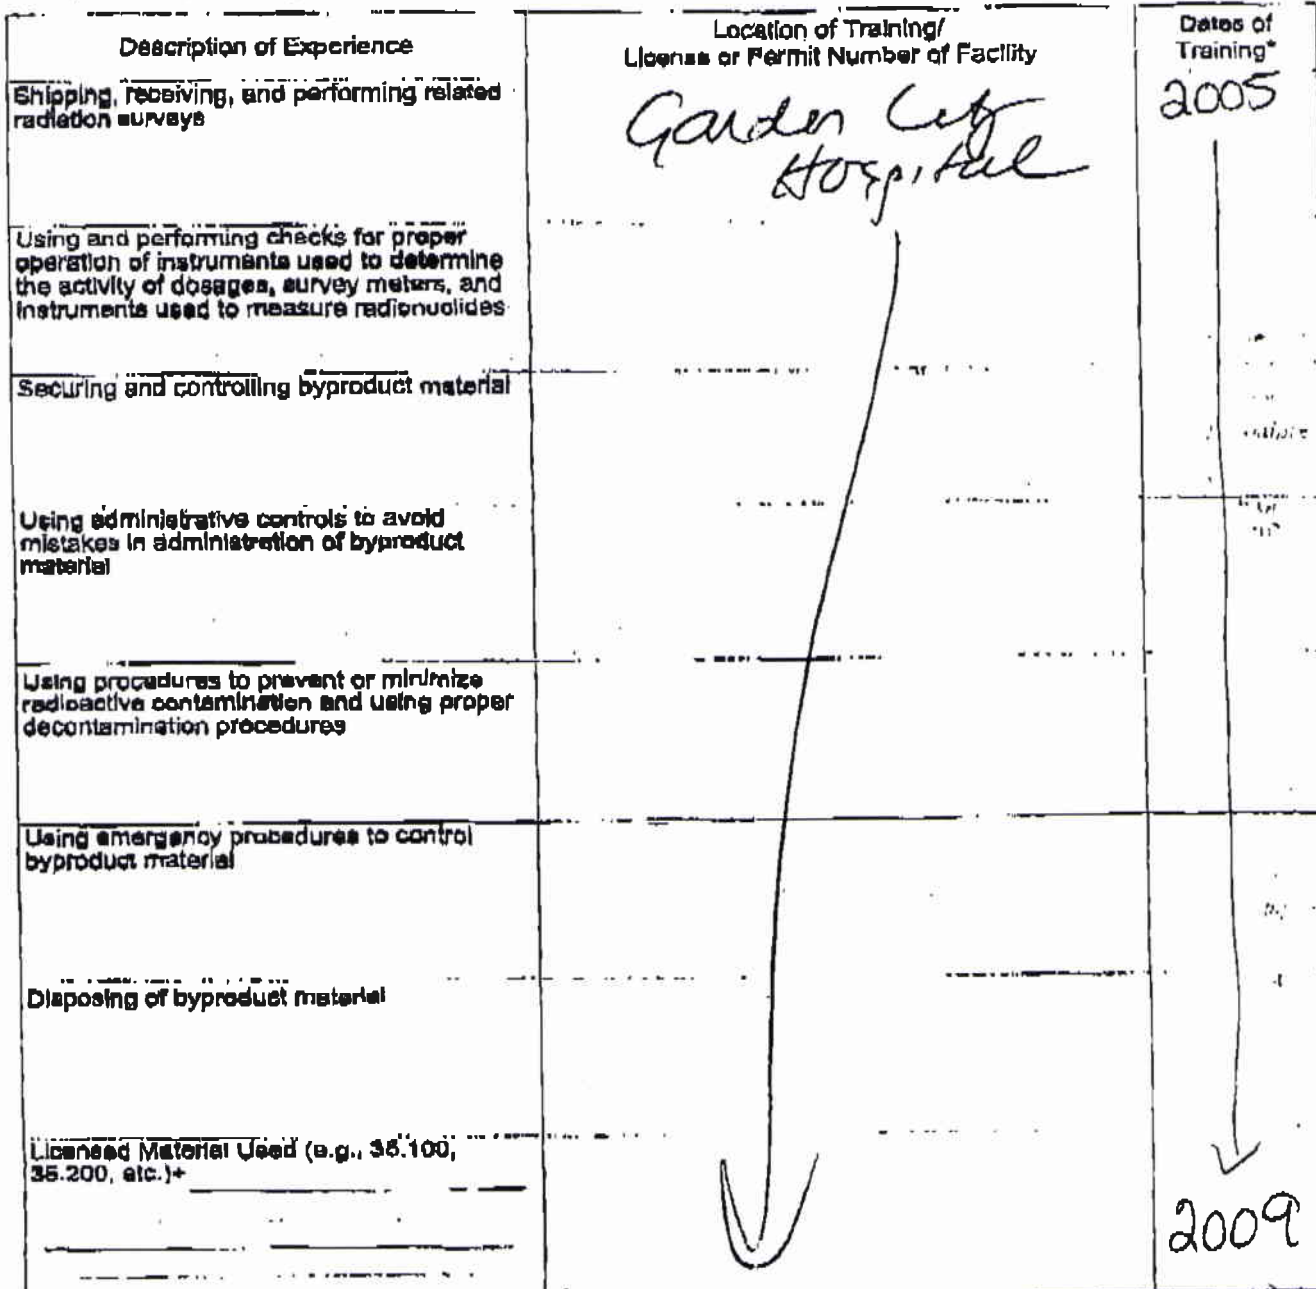 Description of Experience
Location of Training/
License or Permit Number of Facility
Dates of
Training*
Shipping, receiving, and performing related
radiation surveys
Garden City
Hospital
2005
Using and performing checks for proper
operation of instruments used to determine
the activity of dosages, survey meters, and
instruments used to measure radionuclides
Securing and controlling byproduct material
Using administrative controls to avoid
mistakes in administration of byproduct
material
Using procedures to prevent or minimize
radioactive contamination and using proper
decontamination procedures
Using emergency procedures to control
byproduct material
Disposing of byproduct material
Licensed Material Used (e.g., 35.100,
35.200, etc.)+
2009